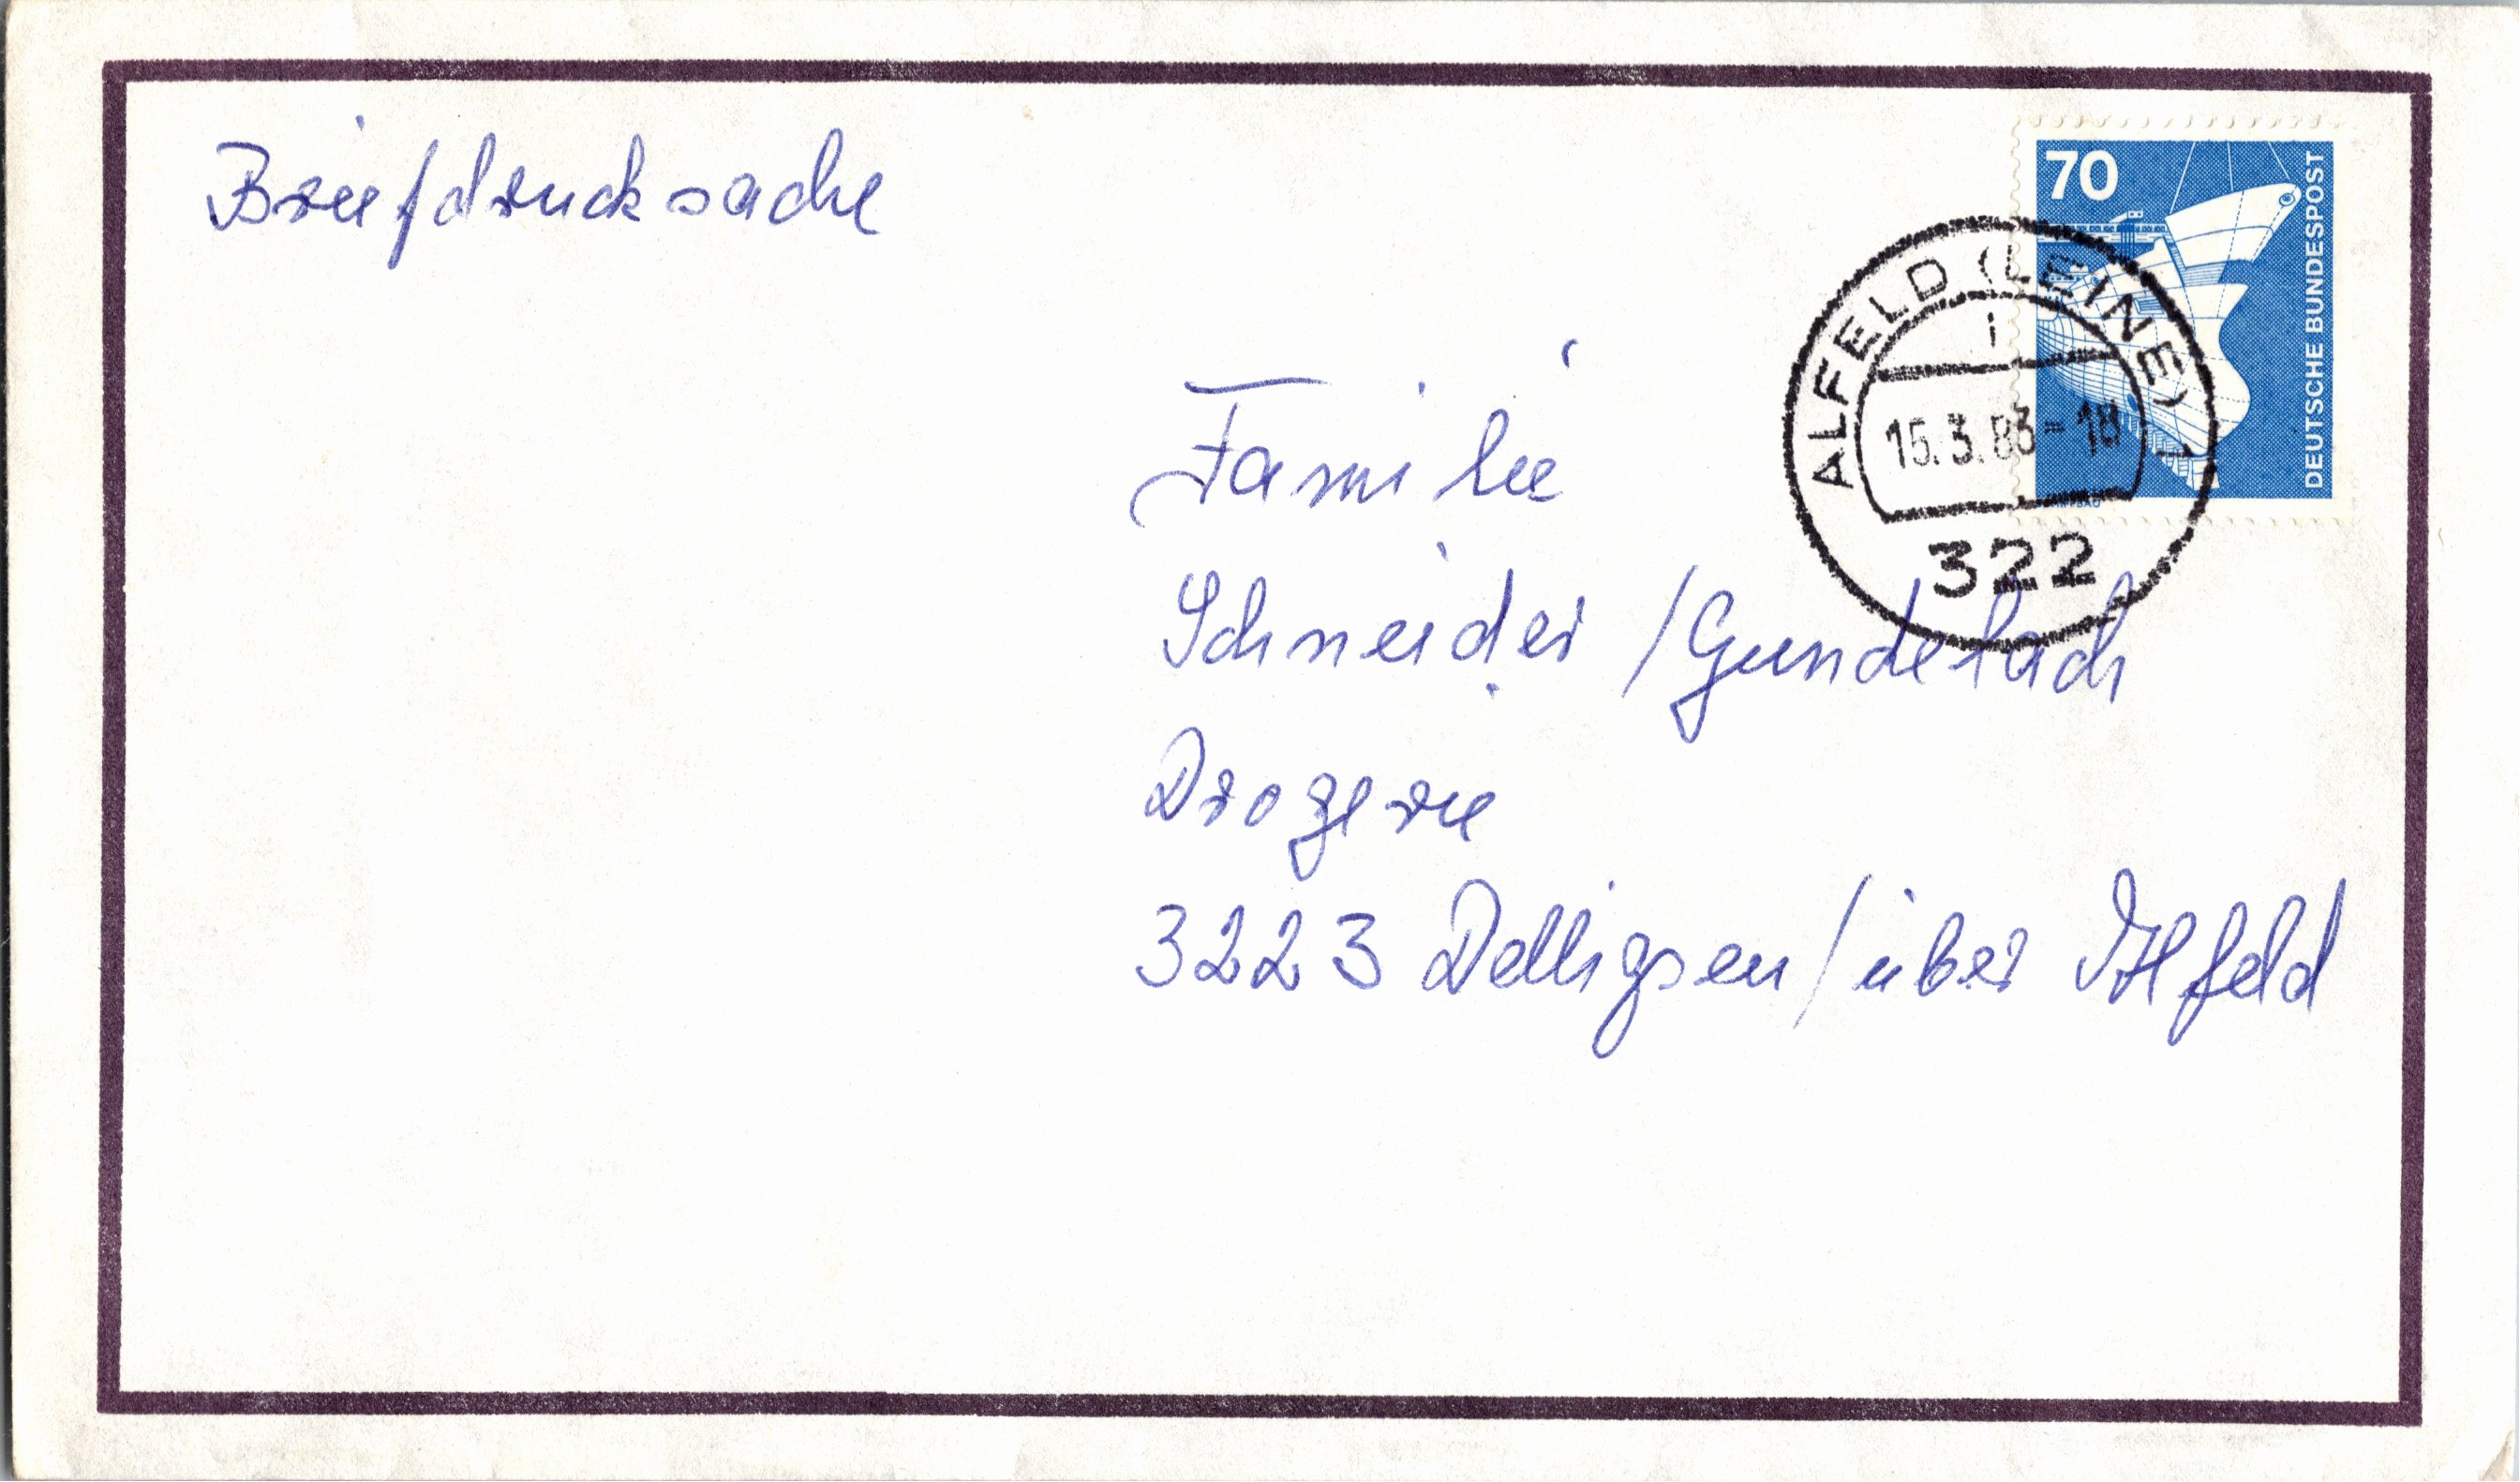 Briefdrucksache
70
DEUTSCHE BUNDESPOST
ALFELD (LEINE) 1
i
15.3.83-18
322
Familie
Schneider / Gundelach
Drogerie
3223 Delligsen / über Alfeld